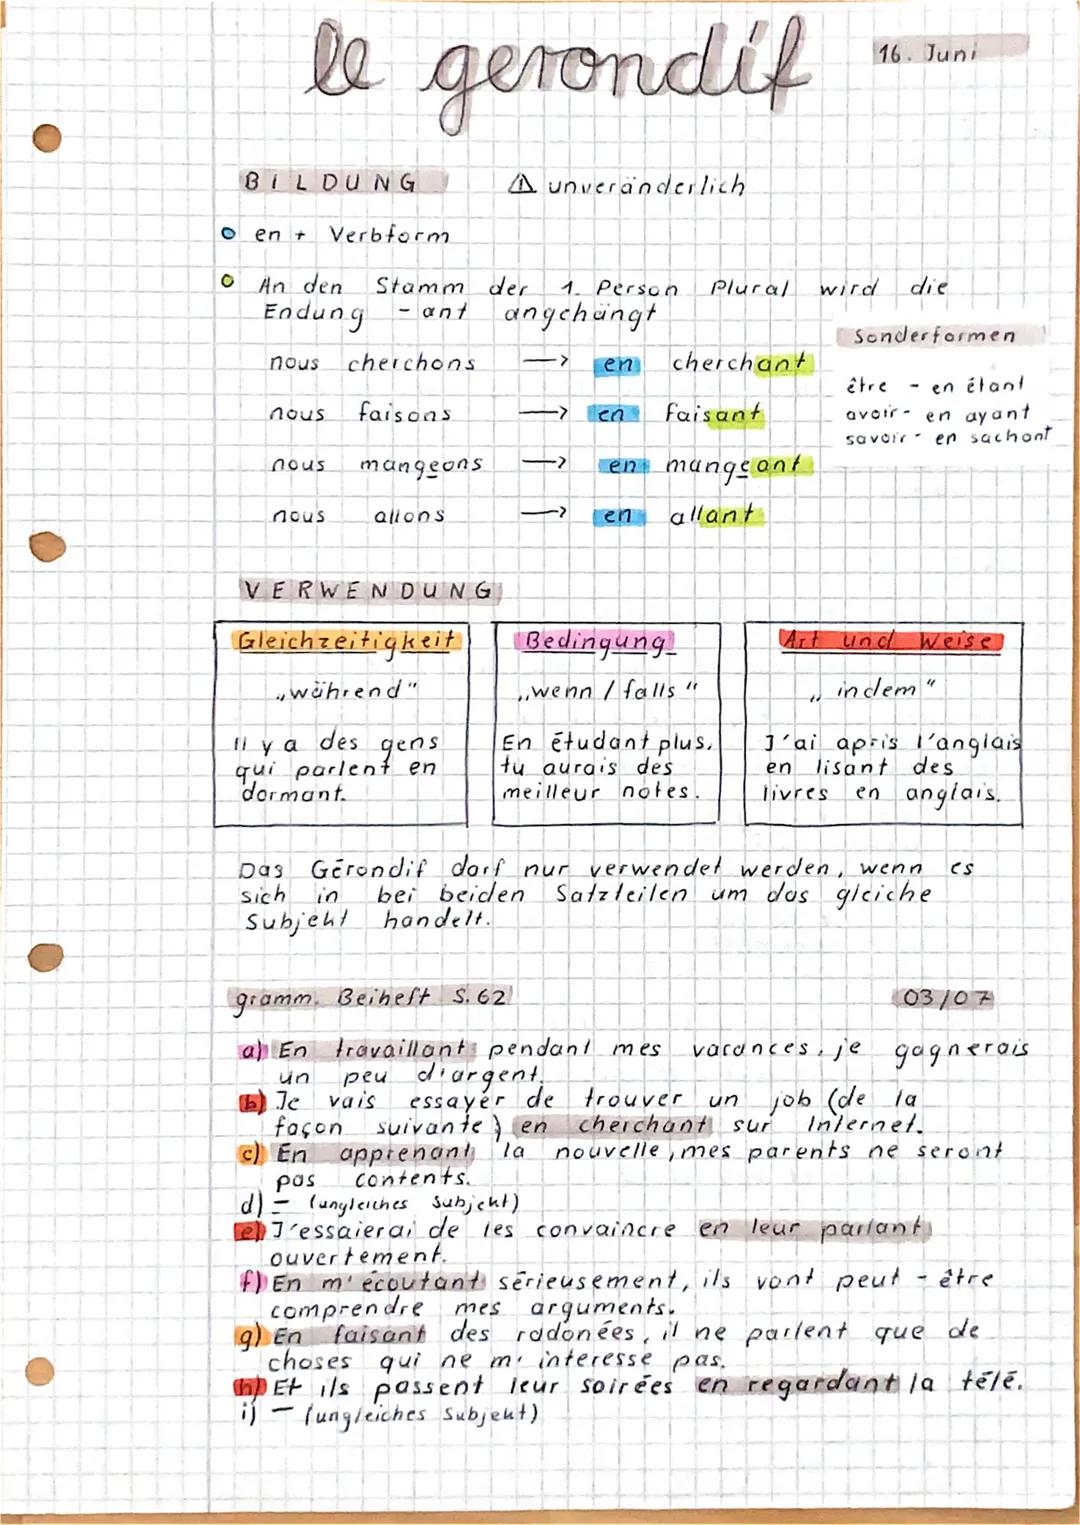 le gerondif
16. Juni
BILDUNG
⚠ unveränderlich
en + Verbform
An den Stamm der 1. Person Plural wird die
Endung -ant angehängt
Sonderformen
nous cherchons → en cherchant
être - en étant
nous faisons → en faisant
avoir - en ayant
savoir - en sachant
nous mangeons → en mangeant
nous allons → en allant
VERWENDUNG
Gleichzeitigkeit
„während"
Il y a des gens
qui parlent en
dormant.
Bedingung
„wenn / falls"
En étudant plus,
tu aurais des
meilleur notes.
Art und Weise
„indem"
J'ai appris l'anglais
en lisant des
livres en anglais.
Das Gérondif darf nur verwendet werden, wenn es
sich in bei beiden Satzteilen um das gleiche
Subjekt handelt.
gramm. Beiheft S. 62
03/07
a) En travaillant pendant mes vacances, je gagnerais
un peu d'argent.
b) Je vais essayer de trouver un job (de la
façon suivante) en cherchant sur Internet.
c) En apprenant la nouvelle, mes parents ne seront
pas contents.
d) - (ungleiches Subjekt)
e) J'essaierai de les convaincre en leur parlant
ouvertement.
f) En m'écoutant sérieusement, ils vont peut-être
comprendre mes arguments.
g) En faisant des radonées, il ne parlent que de
choses qui ne m'interesse pas.
h) Et ils passent leur soirées en regardant la télé.
i) - (ungleiches Subjekt)